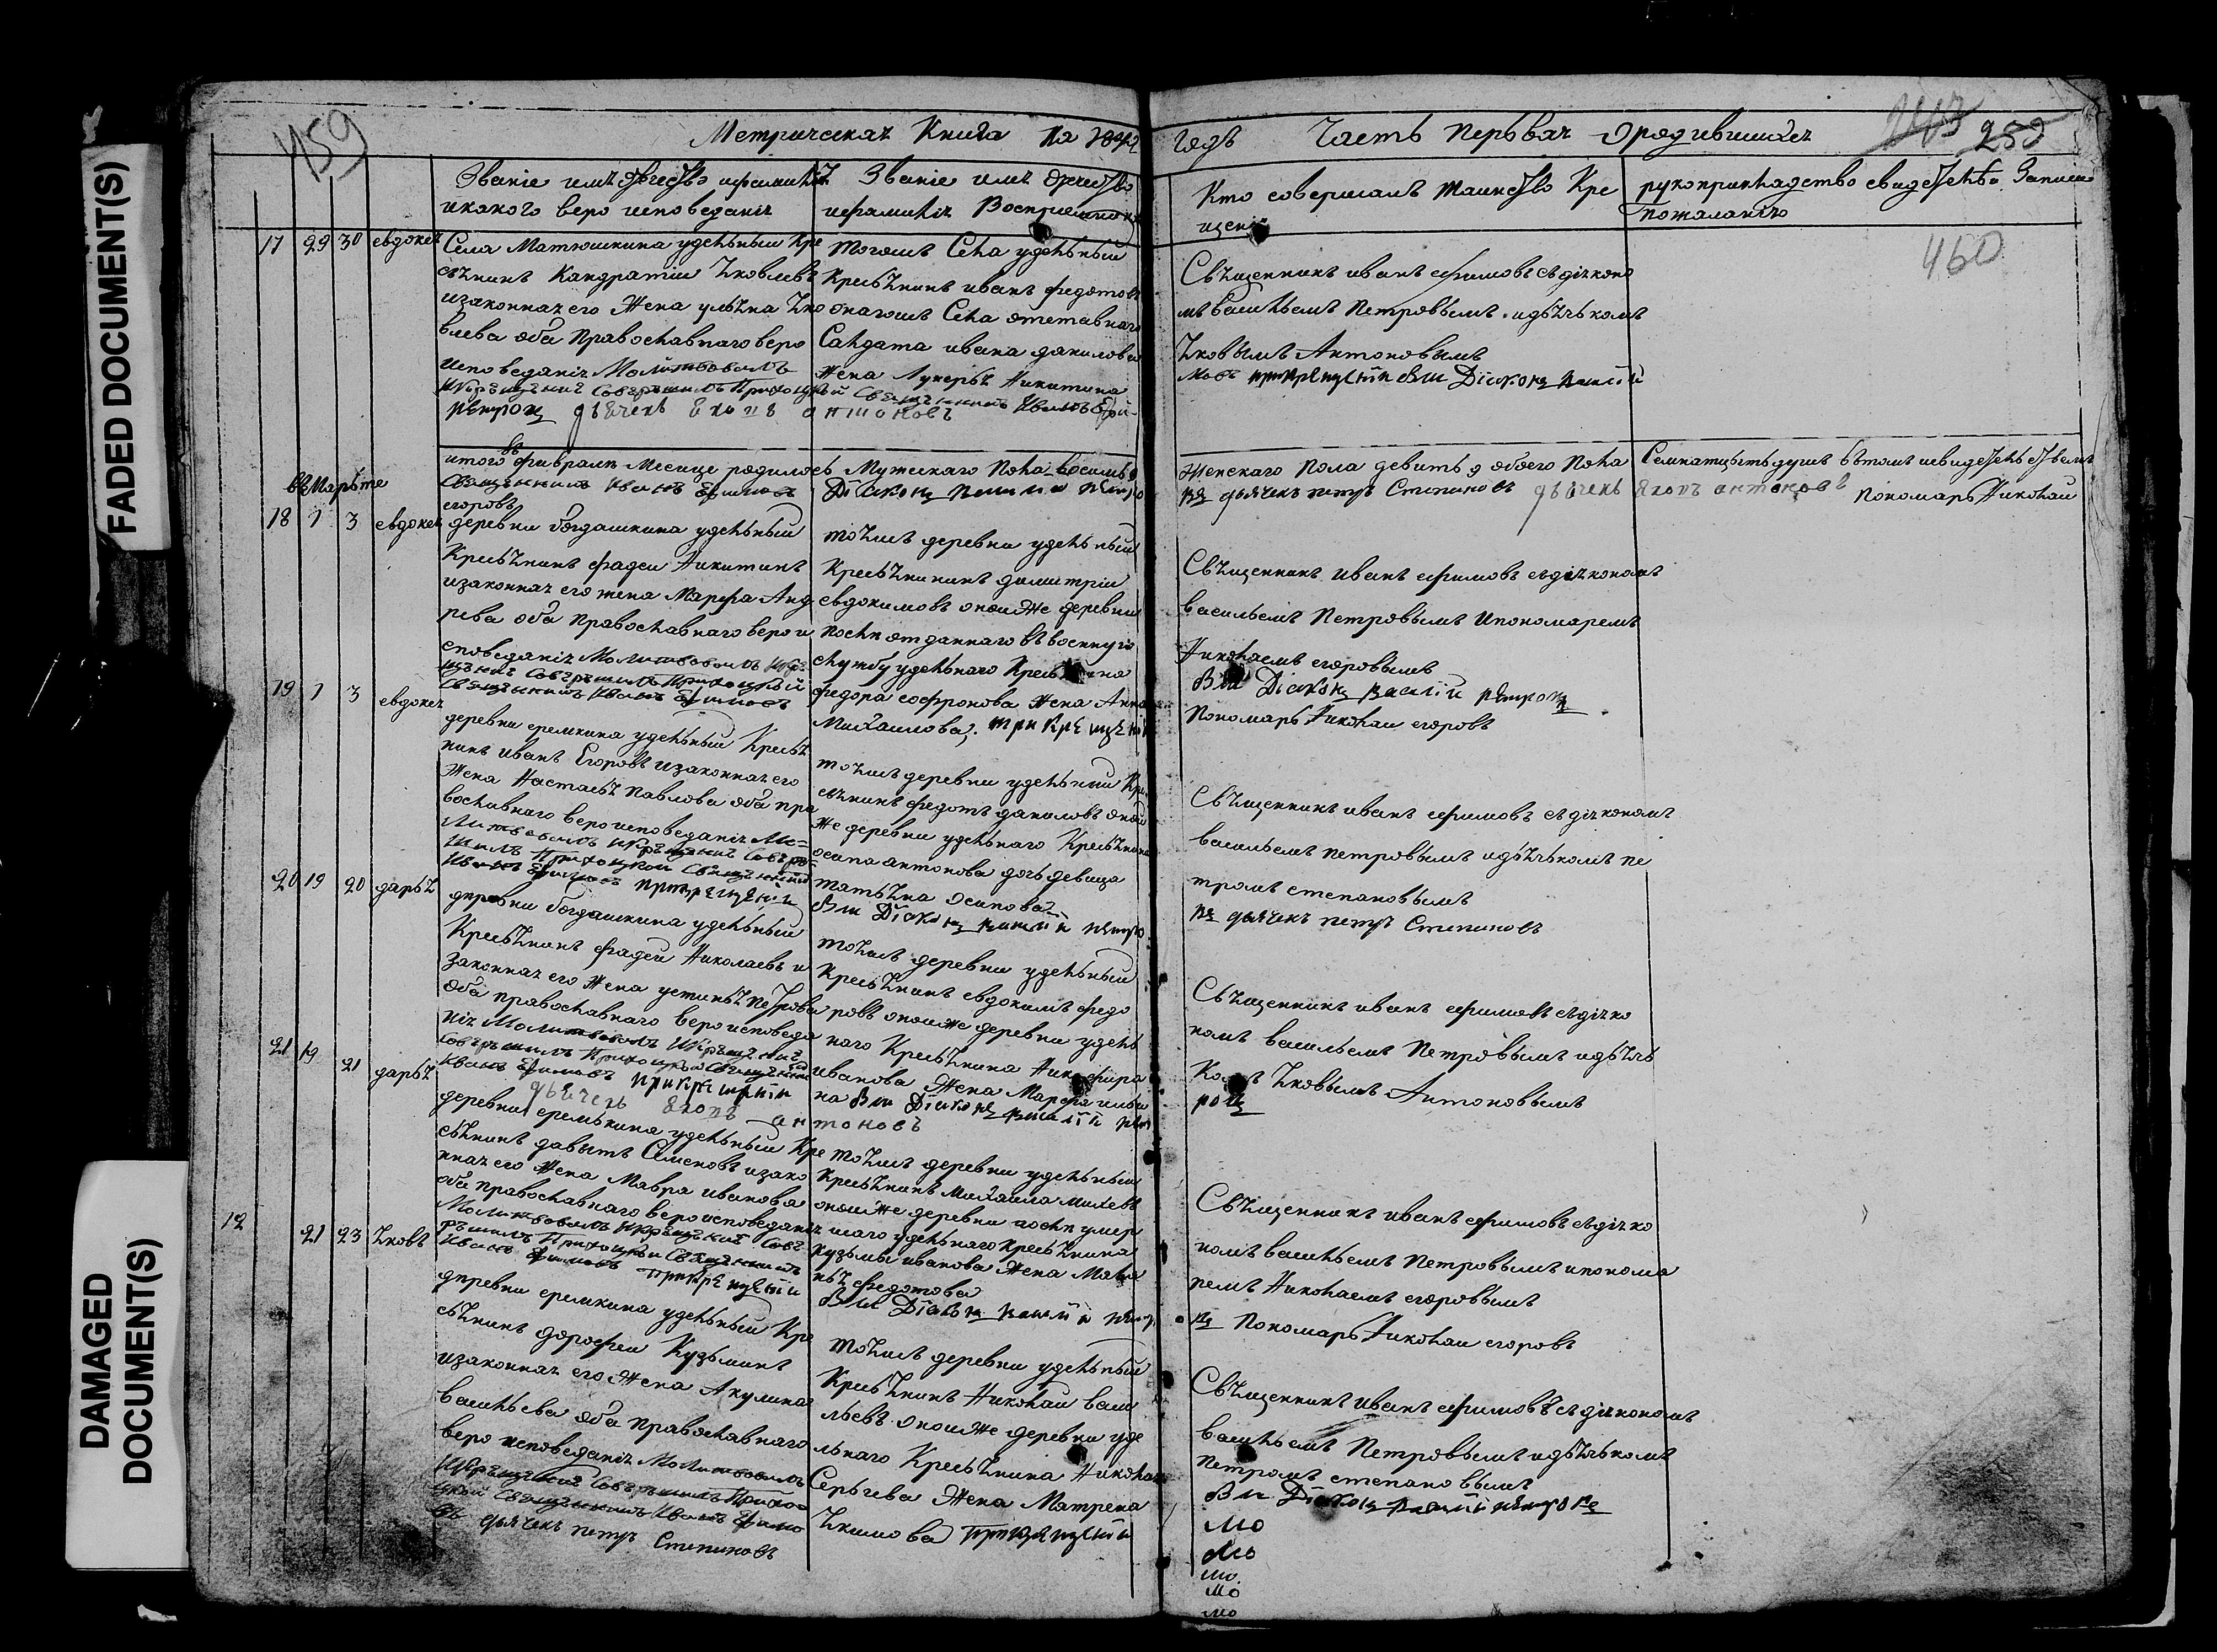 FADED DOCUMENT(S)
DAMAGED
DOCUMENT(S)
459
Метрическаѧ Книга на
годъ Часть первваѧ Ородившихсѧ
259
460
Званіе имѧ отчество ифамиліѧ
икокого веро исповеданіѧ
Званіе имѧ отчество
ифамиліѧ Воспріемниковъ
Кто совершалъ таинство Кре
щеніѧ
рукоприкладство свидетелей Записи
пожеланію
17 29 30 евдокеѧ
Села Матюшкина удельный Кре
сьѧнинъ Кандратіи Ѧковлевъ
изаконнаѧ его Жена ульѧна Ѧко
влева оба Православнаго веро
исповеданіѧ Молитвовалъ
Икрещеніе Совершилъ Приходской Священникъ Иванъ Ефи-
дьячекъ Яковъ антоновъ
тогожъ Села удельный
Кресьѧнинъ иванъ федотовъ
онагожъ Села отставнаго
Салдата ивана данилова
Жена Лукерьѧ Никитина
Свѧщенникъ иванъ ефимовъ сдіѧконо
мъ васильемъ Петровымъ идьѧчкомъ
Ѧковымъ Антоновымъ
мовъ прикрещеніи былъ Діаконъ Василій
Петровъ
итого въ февралѣ Месице родилось Мужескаго пола восемь
Женскаго пола девить а обоего пола Семнатцыть душъ вътомъ исвидетельствуемъ
Священникъ Иванъ Ефимовъ Діаконъ Василій Петро
въ дьячекъ петръ Степановъ дьячекъ Яковъ антоновъ пономарь Николаи
егоровъ
въ Мартѣ
18 1 3 евдокеѧ
деревни богдашкина удельный
Кресьѧнинъ фадеи Никитинъ
изаконнаѧ его жена Марфа Анд
рева оба православнаго веро и
споведаніѧ Молитвовалъ Икре
щеніе Совершилъ Приходской
Священникъ Иванъ Ефимовъ
тоѧжъ деревни удельный
Кресьѧнинъ димитріи
евдокимовъ оноиЖе деревни
после отданнаго въ военную
службу удельнаго Кресьѧнина
федора софронова Жена Анна
Михаилова, при крещеніи
Свѧщенникъ иванъ ефимовъ сдіѧкономъ
василѣемъ Петровымъ ипономаремъ
Николаемъ егоровымъ
былъ Діаконъ Василій Петровъ
Пономарь Николаи егоровъ
19 1 3 евдокеѧ
деревни еремкина удельный Кресьѧ
нинъ иванъ Егоровъ изаконнаѧ его
Жена Настасьѧ Павлова оба пра
вославнаго вероисповеданіѧ Мо-
литвовалъ Икрещеніе Совер
шилъ Приходской Священникъ
Иванъ Ефимовъ прикрещеніи
тоѧжъ деревни удельныи Кре
сьѧнинъ федотъ даниловъ оной
Же деревни удельнаго Кресьѧнина
осипа антонова дочь девица
татьѧна Осипова
былъ Діаконъ Василій Петро
Свѧщенникъ иванъ ефимовъ сдіѧкономъ
васильемъ петровымъ идьѧчкомъ пе
тромъ степановымъ
въ дьячекъ петръ Степановъ
20 19 20 дарьѧ
деревни богдашкина удельный
Кресьѧнинъ фадеи Николаевъ и
законнаѧ его Жена устиньѧ петрова
оба православнаго вероисповеда
ніѧ Молитвовалъ Икрещеніе
Совершилъ Приходской Священникъ
Иванъ Ефимовъ прикрещеніи
дьячекъ Яковъ антоновъ
тоѧжъ деревни удельный
Кресьѧнинъ евдокимъ федо
ровъ оноиже деревни удель
наго Кресьѧнина Никифора
иванова Жена Марфа ильи
на былъ Діаконъ Василій Пет
Свѧщенникъ иванъ ефимовъ сдіѧко
номъ васильемъ Петровымъ идьѧч
комъ Ѧковымъ Антоновымъ
ровъ
21 19 21 дарьѧ
деревни еремькина удельный Кре
сьѧнинъ давытъ Семеновъ изако
ннаѧ его Жена Мавра иванова
оба православнаго вероисповеданіѧ
Молитвовалъ Икрещеніе Сове
ршилъ Приходской Священникъ
Иванъ Ефимовъ прикрещеніи
тоѧжъ деревни удельный
Кресьѧнинъ Михаила михеевъ
оноиЖе деревни после умер
шаго удельнаго кресьѧнина
кузьмы иванова Жена
федотова
былъ Діаконъ Василій Петро
Свѧщенникъ иванъ ефимовъ сдіѧко
номъ василѣемъ Петровымъ ипонома
ремъ Николаемъ егоровымъ
въ Пономарь Николаи егоровъ
12 21 23 Ѧковъ
деревни еремкина удельный Кре
сьѧнинъ дорофеи Кузьминъ
изаконнаѧ его Жена Акулина
васильева оба православнаго
веро исповеданіѧ Молитвовалъ
Икрещеніе Совершилъ Прихо
дской Священникъ Иванъ Ефимо
въ дьячекъ петръ Степановъ
тоѧжъ деревни удельный
Кресьѧнинъ Николаи васи
льевъ оноиЖе деревни уде
льнаго Кресьѧнина Николаѧ
Сергѣева Жена Матрена
Ѧкимова прикрещеніи
Свѧщенникъ иванъ ефимовъ сдіѧкономъ
василѣемъ Петровымъ идьѧчкомъ
петромъ степановымъ
былъ Діаконъ Василій Петровъ
Мо
Мо
мо
Мо
мо